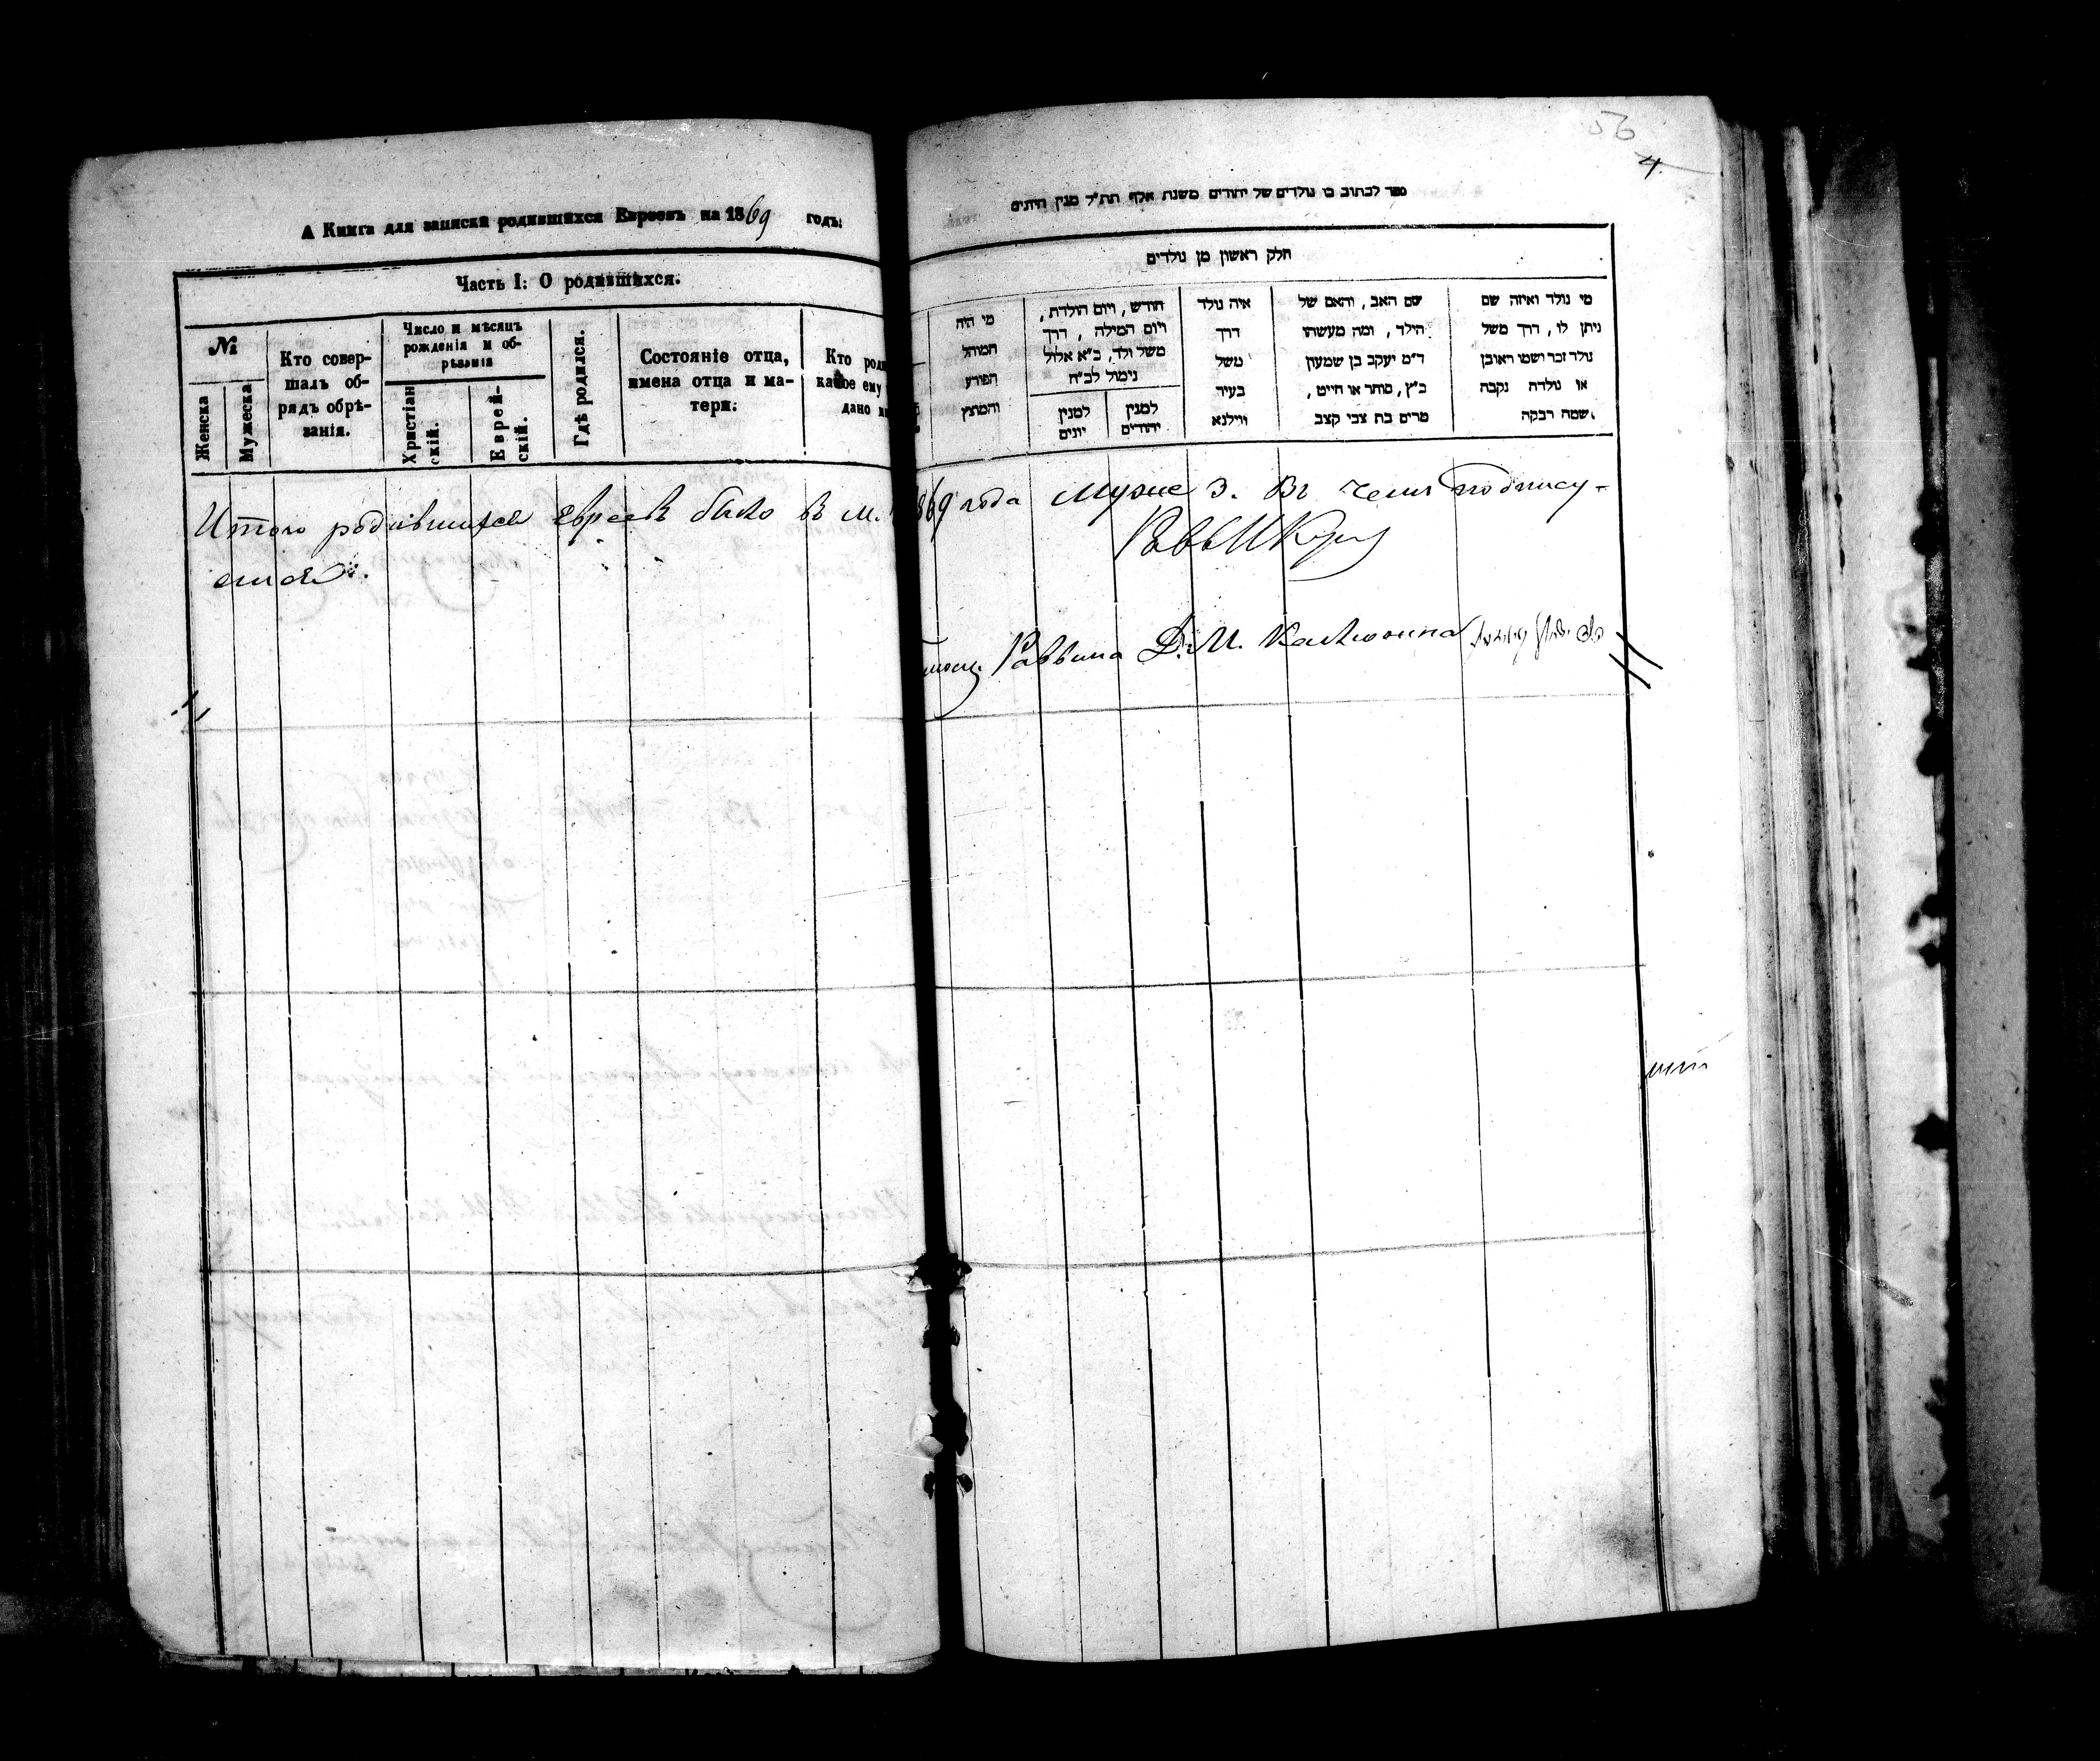 А Книга для записки родившихся Евреевъ на 1869 годъ:
Часть I: О родившихся.
№
Женска
Мужеска
Кто совер-
шалъ об-
рядъ обрѣ-
занія.
Число и мѣсяцъ
рожденія и об-
рѣзанія
Христіан
скій.
Еврей-
скій.
Гдѣ родился.
Состояніе отца,
имена отца и ма-
тери:
Кто роди
какое ему
дано и
Итого родившихся Евреевъ было въ м.
56
4.
ספר לכתוב בו נולדים של יהודים משנת אלף תת״ל מנין היונים
חלק ראשון מן נולדים
מי נולד ואיזה שם
ניתן לו, דרך משל
נולד זכר ושמו ראובן
או נולדה נקבה
שמה רבקה.
שם האב, והאם של
הילד, ומה מעשהו
ד״מ יעקב בן שמעון
כ״ץ, סוחר או חייט,
מרים בת צבי קצב
איה נולד
דרך
משל
בעיר
ווילנא
חודש, ויום הולדת,
ויום המילה, דרך
משל ולד, כ״א אלול
נימול לכ״ח
למנין
יהודים
למנין
יונים
מי היה
המוהל
הפורע
והמוצץ
869 года Муже 3. Въ чемъ подпису-
емся.
Раввина Д. М.